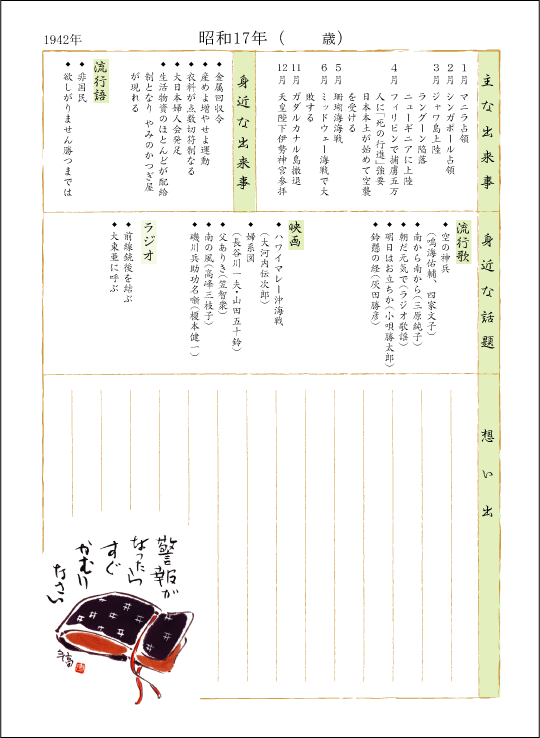 1942年
昭和17年（　　歳）
主な出来事
1月 マニラ占領
2月 シンガポール占領
3月 ジャワ島上陸
ラングーン陥落
ニューギニアに上陸
4月 フィリピンで捕虜五万
人に「死の行進」強要
日本本土が始めて空襲
を受ける
5月 珊瑚海海戦
6月 ミッドウェー海戦で大
敗する
11月 ガダルカナル島撤退
12月 天皇陛下伊勢神宮参拝
身近な出来事
◆ 金属回収令
◆ 産めよ増やせよ運動
◆ 衣料が点数切符制なる
◆ 大日本婦人会発足
◆ 生活物資のほとんどが配給
制となり やみのかつぎ屋
が現れる
流行語
◆ 非国民
◆ 欲しがりません勝つまでは
身近な話題
流行歌
◆ 空の神兵
（鳴海佑輔、四家文子）
◆ 南から南から（三原純子）
◆ 朝だ元気で（ラジオ歌謡）
◆ 明日はお立ちか（小唄勝太郎）
◆ 鈴懸の経（灰田勝彦）
映画
◆ ハワイマレー沖海戦
（大河内伝次郎）
◆ 婦系図
（長谷川一夫・山田五十鈴）
◆ 父ありき（笠智衆）
◆ 南の風（高峰三枝子）
◆ 磯川兵助功名噺（榎本健一）
ラジオ
◆ 前線銃後を結ぶ
◆ 大東亜に呼ぶ
想い出
警報が
なったら
すぐ
かむり
なさい